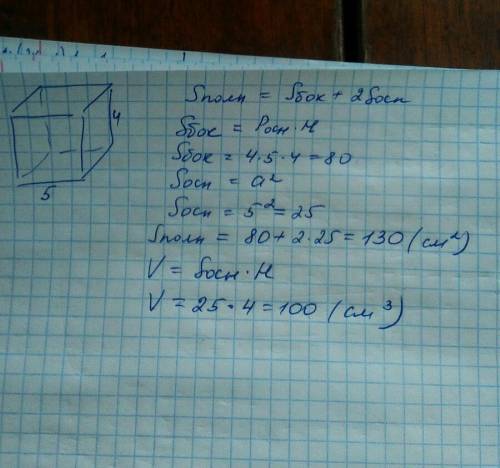 Sполн = Sбок + 2Sосн
Sбок = Pосн · H
Sбок = 4 · 5 · 4 = 80
Sосн = a²
Sосн = 5² = 25
Sполн = 80 + 2 · 25 = 130 (см²)
V = Sосн · H
V = 25 · 4 = 100 (см³)
4
5